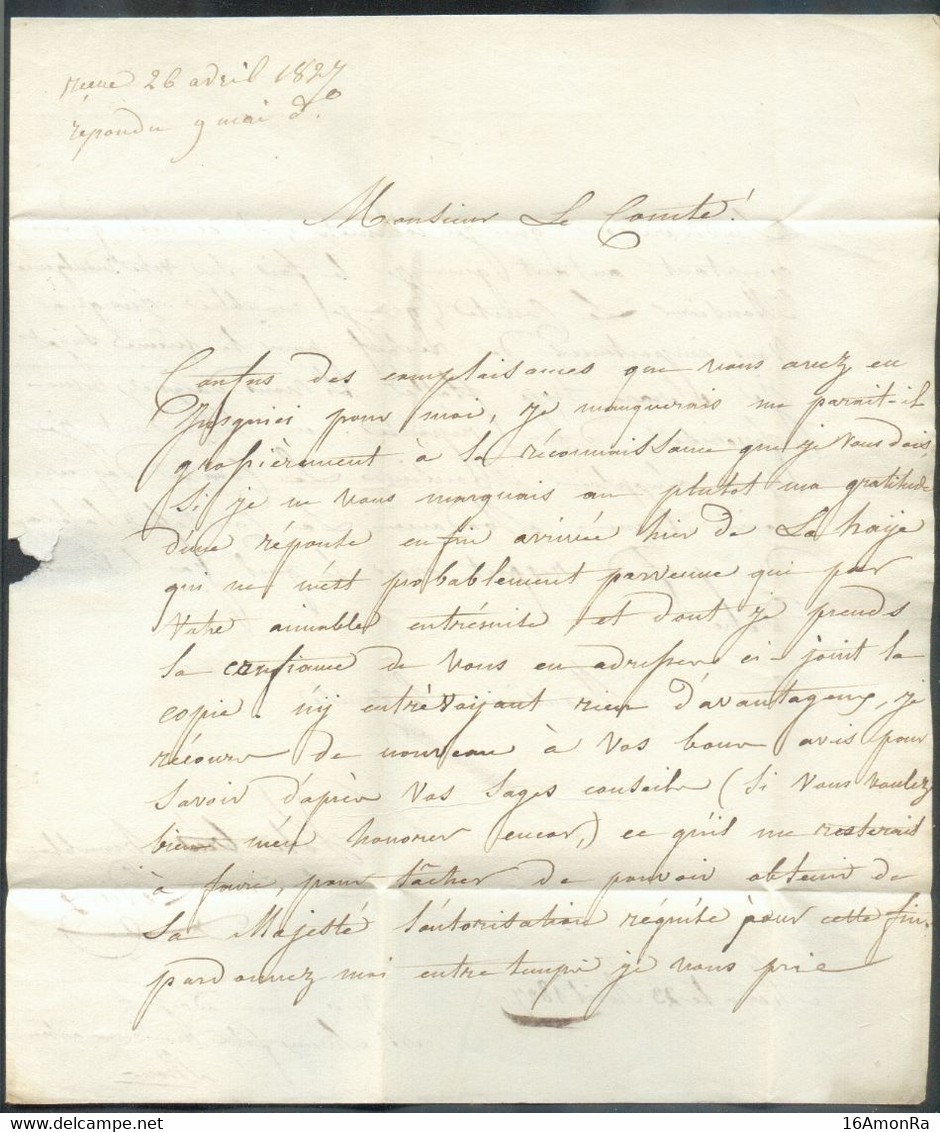 recue 26 avril 1827
repondu 9 mai do.
Monsieur Le Comte!
Confus des complaisances que vous avez eu
Jusqu'ici pour moi, je manquerais me parait-il
grossièrement à la réconnaissance que je vous dois,
Si je ne vous marquais au plutot ma gratitude
d'une réponse enfin arrivée hier de La haÿe
qui ne m'est probablement parvenue que par
Votre aimable entrémise et dont je prends
la confiance de vous en adresser ci-joint la
copie. n'ÿ entrévoÿant rien d'avantageux, je
récours de nouveau à Vos bons avis pour
Savoir d'après Vos Sages conseils (Si Vous voulez
bien m'en honorer encor,) ce qu'il me resterait
à faire, pour tâcher de pouvoir obtenir de
Sa Majesté l'autorisation réquise pour cette fin.
pardonnez moi entretemps je vous prie
16AmonRa